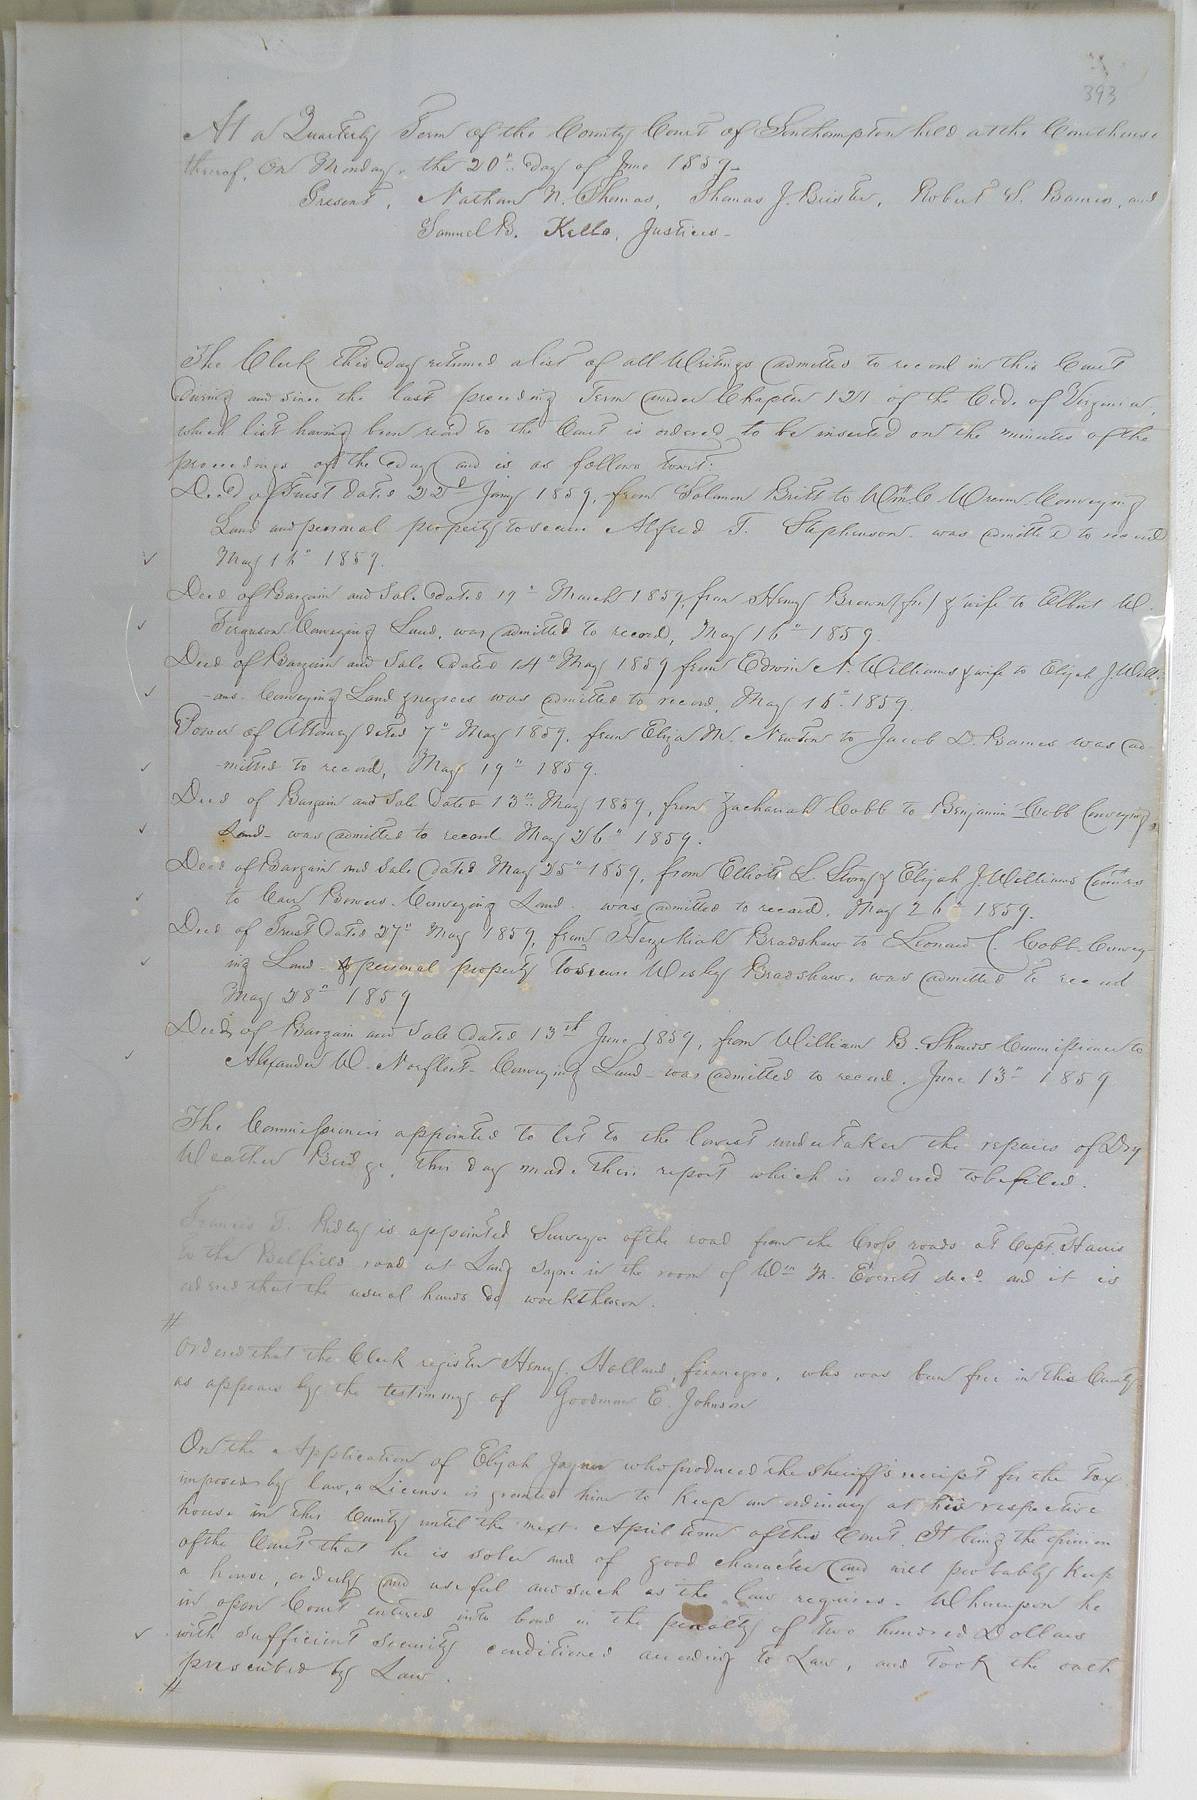 393
At a Quarterly Term of the County Court of Southampton held at the Courthouse
thereof, On Monday, the 20" day of June 1859_
Present, Nathan N. Thomas, Thomas J. Brister, Robert S. Barnes, and
Samuel B. Kello, Justices_
The Clerk this day returned a list of all Writings admitted to record in this Court
during and since the last preceding Term under Chapter 121 of the Code of Virginia,
which list having been read to the Court is ordered to be inserted on the minutes of the
proceedings of the day and is as follows towit:
Deed of Trust dated 22d Jany 1859, from Solomon Britt to Wm. C. Wrenn Conveying
Land and personal property to secure Alfred T. Stephenson was admitted to record
May 16" 1859.
Deed of Bargain and Sale dated 19" March 1859, from Henry Brown (fn) & wife to Elbert W.
Ferguson Conveying Land, was admitted to record, May 16" 1859.
Deed of Bargain and Sale dated 14" May 1859 from Edwin A. Williams & wife to Elijah J. Willi-
-ams Conveying Land & negroes was admitted to record, May 16" 1859.
Power of Attorney dated 7" May 1859, from Eliza M. Newton to Jacob D. Barnes was ad-
-mitted to record, May 19" 1859.
Deed of Bargain and Sale dated 13" May 1859, from Zachariah Cobb to Benjamin Cobb Conveying
Land_ was admitted to record May 26" 1859.
Deed of Bargain and Sale dated May 25" 1859, from Elliott L. Story & Elijah J. Williams Comrs
to Carr Bowers Conveying Land was admitted to record, May 26" 1859.
Deed of Trust dated 27" May 1859, from Hezekiah Bradshaw to Leonard C. Cobb Convey-
ing Land & personal property to secure Wesley Bradshaw, was admitted to record
May 28" 1859
Deed of Bargain and Sale dated 13th June 1859, from William B. Shands Commissioner to
Alexander W. Norfleet_ Conveying Land_ was admitted to record, June 13" 1859
The Commissioners appointed to let to the lowest undertaker the repairs of Dry
Weather Bridge, this day made their report which is ordered to be filed.
Francis T. Ridley is appointed Surveyor of the road from the Cross roads at Capt. Harris
to the Belfield road at in the room of Wm M. Everett decd. and it is
ordered that the usual hands do work thereon.
#
Ordered that the Clerk register Henry Holland, free negro, who was born free in this County
as appears by the testimony of Goodman E. Johnson
On the Application of Elijah Joyner who produced the Sheriff's receipt for the Tax
imposed by law, a License is granted him to keep an ordinary at his respective
house in this County until the next April term of this Court, It being the opinion
of the Court that he is sober and of good character and will probably keep
a house, orderly and useful and such as the law requires. Whereupon he
in open Court entered into bond in the penalty of Two hundred Dollars
with sufficient security conditioned according to Law, and took the oath
prescribed by Law.
#